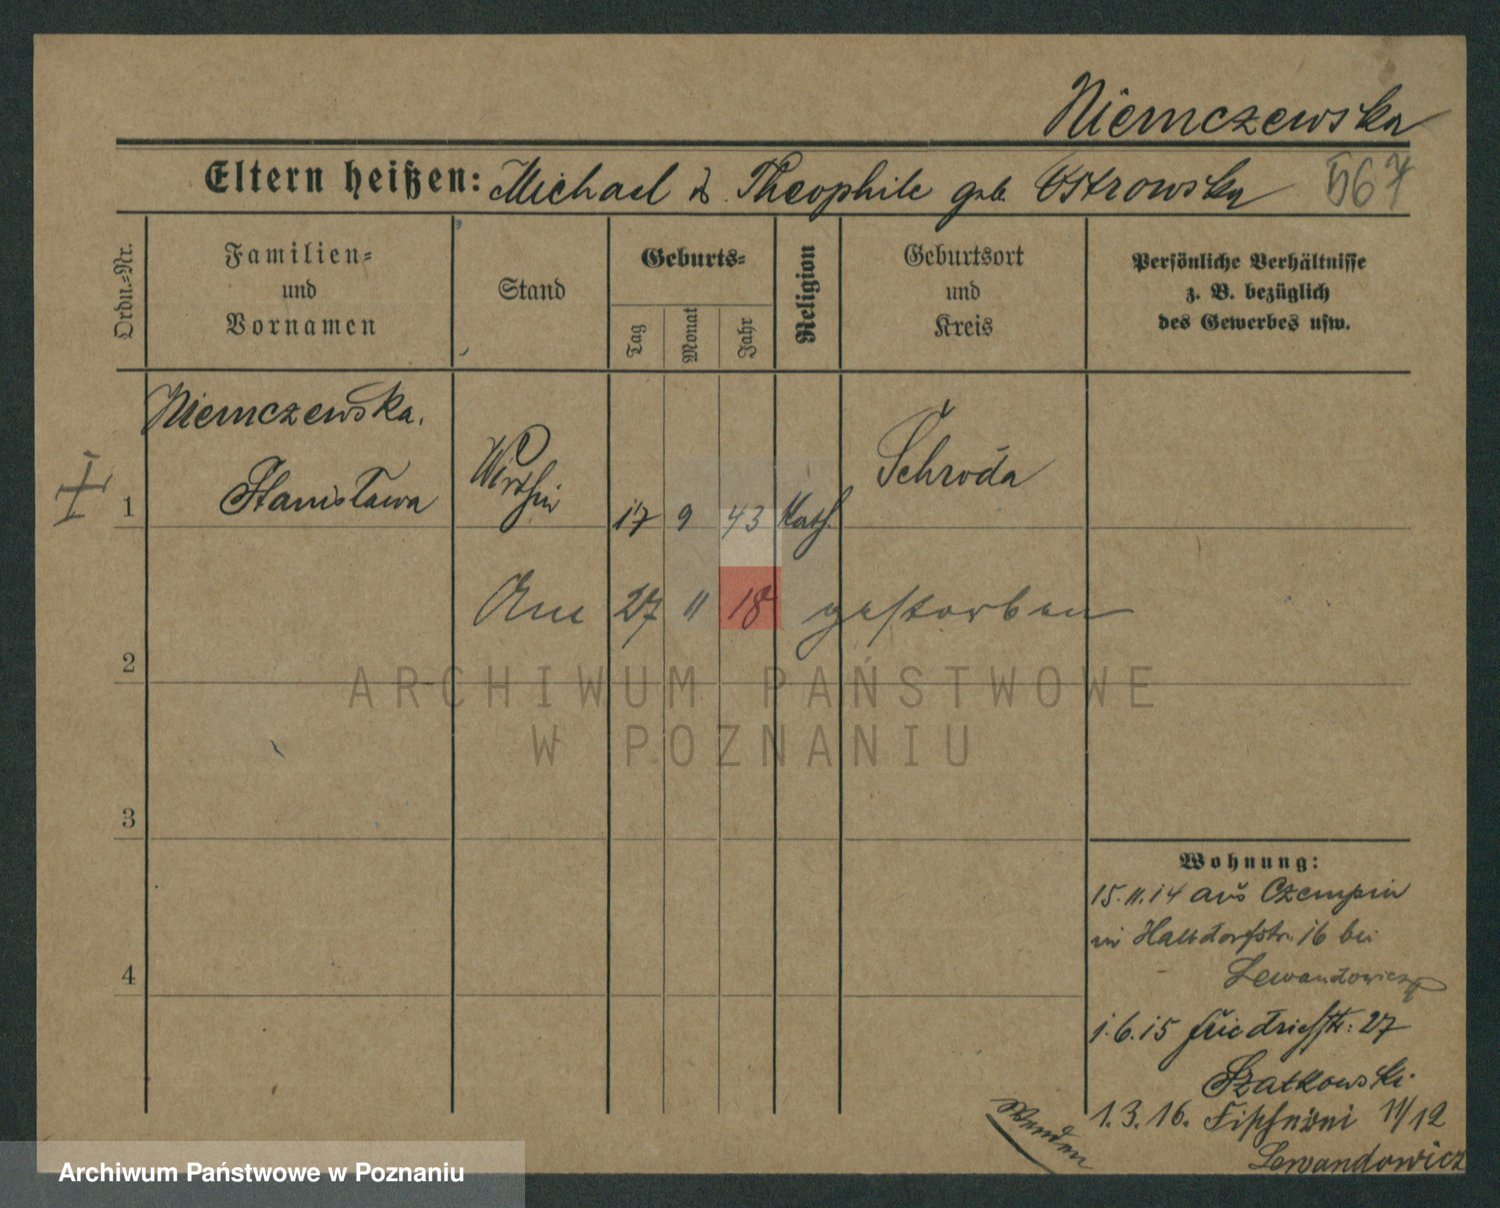 Niemczewska
Eltern heißen: Michael & Theophile geb. Ostrowska 567
Ordn.-Nr.
Familien-
und
Vornamen
Stand
Geburts-
Tag
Monat
Jahr
Religion
Geburtsort
und
Kreis
Persönliche Verhältnisse
z. B. bezüglich
des Gewerbes usw.
Niemczewska.
1 Stanisława Wirthin 17 9 43 Kath. Schroda
Am 27 11 18 gestorben
2
ARCHIWUM PAŃSTWOWE
W POZNANIU
3
4
Wohnung:
15.11.14 aus Czempin
in Halbdorfstr. 16 bei
Lewandowicz
1.6.15 Friedrichstr. 27
Szatkowski.
1.3.16. 11/12
Lewandowicz
Wenden
Archiwum Państwowe w Poznaniu